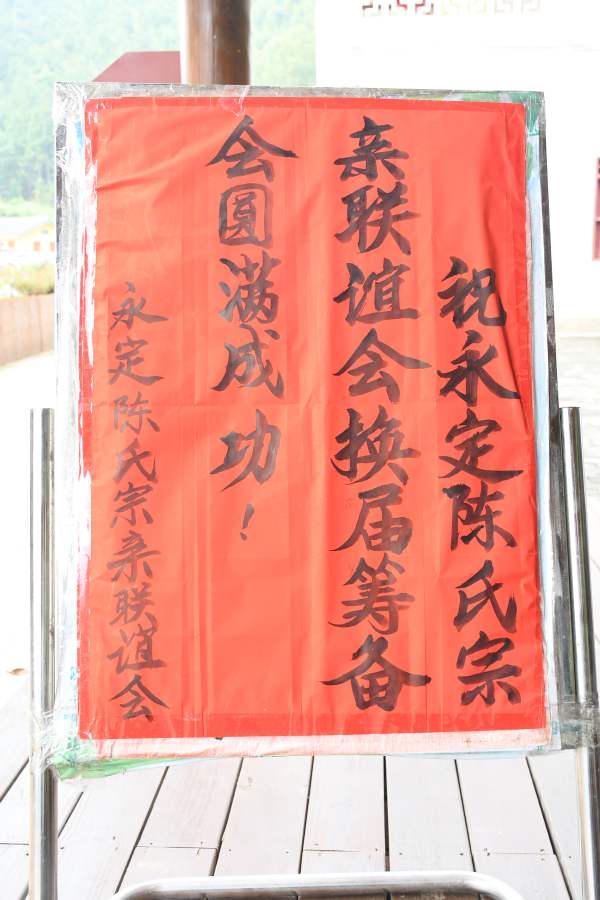 祝永定陈氏宗
亲联谊会换届筹备
会圆满成功！
永定陈氏宗亲联谊会